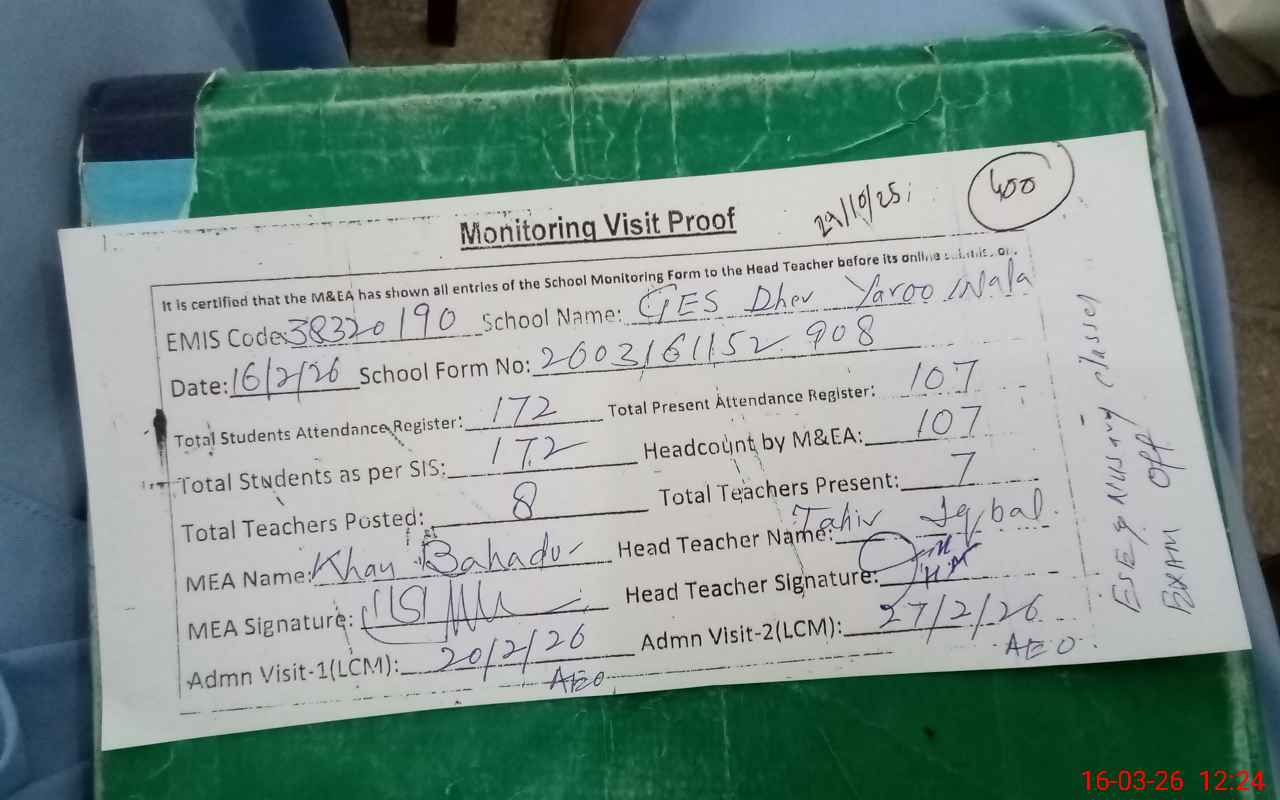 29/10/25
400
Monitoring Visit Proof
It is certified that the M&EA has shown all entries of the School Monitoring Form to the Head Teacher before its online
EMIS Code: 38320190 School Name: GES Dhev Yaroo Wala
Date: 16/2/26 School Form No: 2603161152 908
Total Students Attendance Register: 172 Total Present Attendance Register: 107
Total Students as per SIS: 172 Headcount by M&EA: 107
Total Teachers Posted: 8 Total Teachers Present: 7
MEA Name: Khan Bahadur Head Teacher Name: Tahir Iqbal
MEA Signature: Head Teacher Signature:
Admn Visit-1(LCM): 20/2/26 Admn Visit-2(LCM): 27/2/26
AEO AEO
Nursary classes
Exam off
16-03-26 12:24